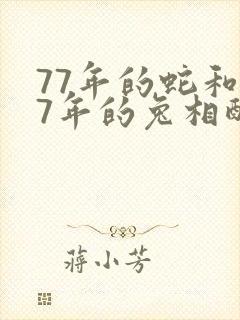 77年的蛇和
7年的兔相
蒋小芳